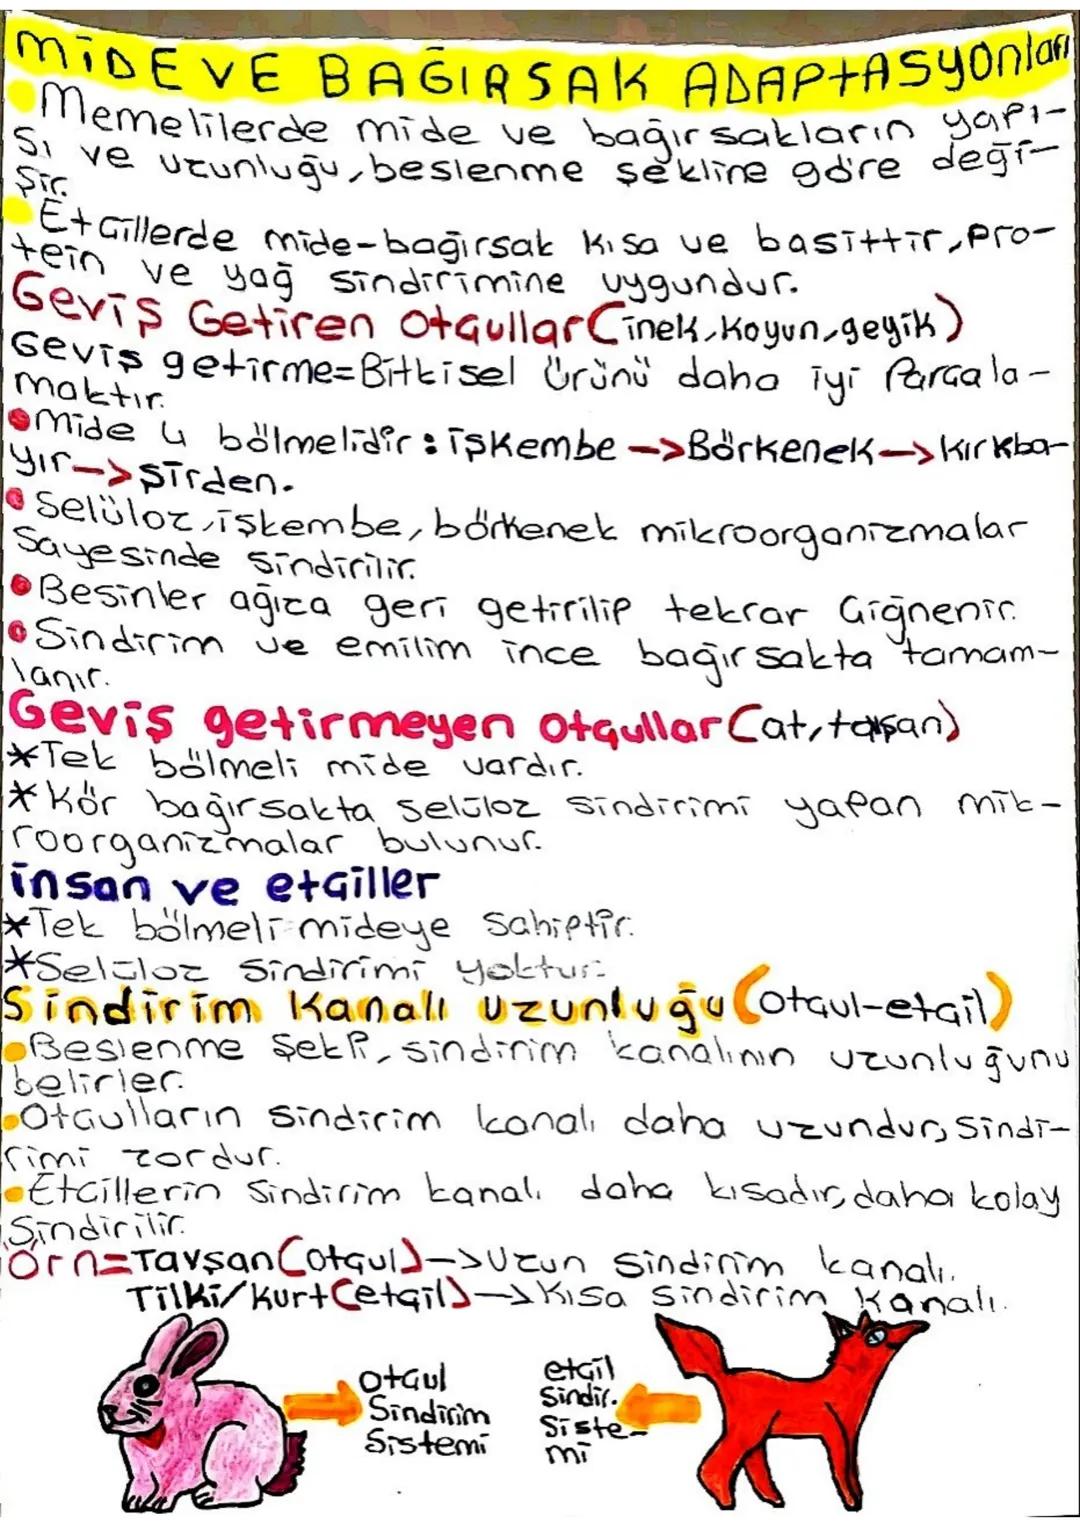 MİDE VE BAĞIRSAK ADAPTASYONları
Memelilerde mide ve bağırsakların yapı-
sı ve uzunluğu, beslenme şekline göre deği-
şir.
Etçillerde mide-bağırsak kısa ve basittir, pro-
tein ve yağ sindirimine uygundur.
Geviş Getiren Otçullar (inek, koyun, geyik)
Geviş getirme=Bitkisel ürünü daha iyi parçala-
maktır.
Mide 4 bölmelidir: işkembe -> Börkenek -> kırkba-
yır -> şirden.
Selüloz, işkembe, börkenek mikroorganizmalar
sayesinde sindirilir.
Besinler ağıza geri getirilip tekrar çiğnenir.
Sindirim ve emilim ince bağırsakta tamam-
lanır.
Geviş getirmeyen otçullar (at, tavşan)
*Tek bölmeli mide vardır.
*Kör bağırsakta selüloz sindirimi yapan mik-
roorganizmalar bulunur.
insan ve etçiller
*Tek bölmeli mideye sahiptir.
*Selüloz sindirimi yoktur.
Sindirim Kanalı uzunluğu (otçul-etçil)
Beslenme şekli, sindirim kanalının uzunluğunu
belirler.
Otçulların sindirim kanalı daha uzundur, sindi-
rimi zordur.
Etçillerin sindirim kanalı daha kısadır, daha kolay
sindirilir.
Örn=Tavşan (otçul) -> Uzun sindirim kanalı.
Tilki/kurt (etçil) -> Kısa sindirim kanalı.
otçul
Sindirim
Sistemi
etçil
Sindir.
Siste-
mi